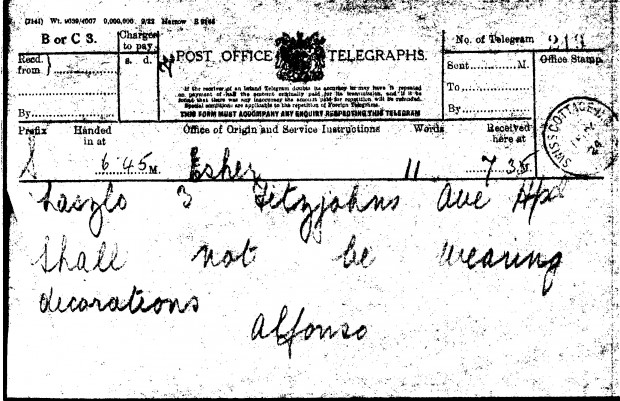 (7141) Wt. 9039/4007 0,000,000 9/22 Narrow
B or C S.
Charges to pay.
s. d.
POST OFFICE TELEGRAPHS.
No. of Telegram
Recd. from
Sent M.
To
By
Office Stamp.
If the receiver of an Inland Telegram doubts its accuracy he may have it repeated
on payment of half the amount originally paid for its transmission, and if it be
found that there was any inaccuracy the amount paid for repetition will be refunded.
Special conditions are applicable to the repetition of Foreign Telegrams.
THIS FORM MUST ACCOMPANY ANY ENQUIRY RESPECTING THIS TELEGRAM
By
Prefix Handed in at Office of Origin and Service Instructions Words Received here at
S 6 45 M. Esher 11 7 35 M.
SWISS COTTAGE
24
Laszlo 3 Fitzjohns Ave
Shall not be wearing
decorations
Alfonso